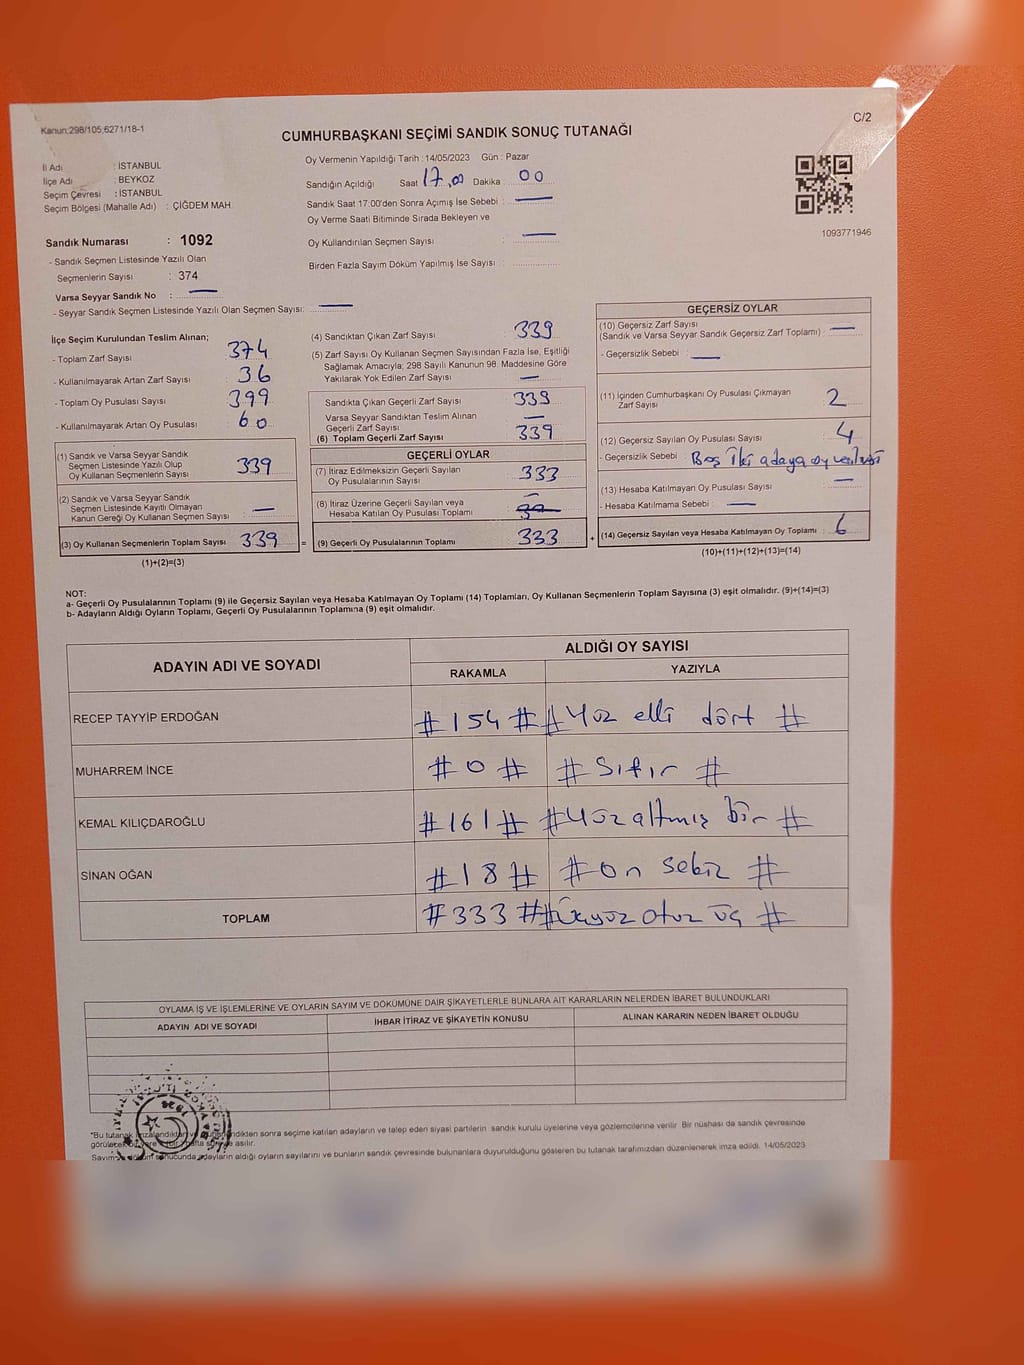 Kanun;298/105;6271/18-1
C/2
CUMHURBAŞKANI SEÇİMİ SANDIK SONUÇ TUTANAĞI
İl Adı : İSTANBUL
İlçe Adı : BEYKOZ
Seçim Çevresi : İSTANBUL
Seçim Bölgesi (Mahalle Adı) : ÇİĞDEM MAH.
Oy Vermenin Yapıldığı Tarih : 14/05/2023 Gün : Pazar
Sandığın Açıldığı Saat 17,00 Dakika : 00
Sandık Saat 17:00'den Sonra Açımış İse Sebebi : —
Oy Verme Saati Bitiminde Sırada Bekleyen ve
Oy Kullandırılan Seçmen Sayısı : —
Birden Fazla Sayım Döküm Yapılmış İse Sayısı :
1093771946
Sandık Numarası : 1092
- Sandık Seçmen Listesinde Yazılı Olan
Seçmenlerin Sayısı : 374
Varsa Seyyar Sandık No : —
- Seyyar Sandık Seçmen Listesinde Yazılı Olan Seçmen Sayısı: —
İlçe Seçim Kurulundan Teslim Alınan;
- Toplam Zarf Sayısı 374
- Kullanılmayarak Artan Zarf Sayısı 36
- Toplam Oy Pusulası Sayısı 399
- Kullanılmayarak Artan Oy Pusulası 60
(1) Sandık ve Varsa Seyyar Sandık
Seçmen Listesinde Yazılı Olup
Oy Kullanan Seçmenlerin Sayısı 339
(2) Sandık ve Varsa Seyyar Sandık
Seçmen Listesinde Kayıtlı Olmayan
Kanun Gereği Oy Kullanan Seçmen Sayısı —
(3) Oy Kullanan Seçmenlerin Toplam Sayısı 339 =
(1)+(2)=(3)
(4) Sandıktan Çıkan Zarf Sayısı 339
(5) Zarf Sayısı Oy Kullanan Seçmen Sayısından Fazla İse, Eşitliği
Sağlamak Amacıyla; 298 Sayılı Kanunun 98. Maddesine Göre
Yakılarak Yok Edilen Zarf Sayısı —
Sandıkta Çıkan Geçerli Zarf Sayısı 339
Varsa Seyyar Sandıktan Teslim Alınan
Geçerli Zarf Sayısı —
(6) Toplam Geçerli Zarf Sayısı 339
GEÇERLİ OYLAR
(7) İtiraz Edilmeksizin Geçerli Sayılan
Oy Pusulalarının Sayısı 333
(8) İtiraz Üzerine Geçerli Sayılan veya
Hesaba Katılan Oy Pusulası Toplamı —
(9) Geçerli Oy Pusulalarının Toplamı 333 +
GEÇERSİZ OYLAR
(10) Geçersiz Zarf Sayısı
(Sandık ve Varsa Seyyar Sandık Geçersiz Zarf Toplamı) : —
- Geçersizlik Sebebi : —
(11) İçinden Cumhurbaşkanı Oy Pusulası Çıkmayan
Zarf Sayısı 2
(12) Geçersiz Sayılan Oy Pusulası Sayısı : 4
- Geçersizlik Sebebi : Boş İki adaya oy verilişi
(13) Hesaba Katılmayan Oy Pusulası Sayısı : —
- Hesaba Katılmama Sebebi : —
(14) Geçersiz Sayılan veya Hesaba Katılmayan Oy Toplamı : 6
(10)+(11)+(12)+(13)=(14)
NOT:
a- Geçerli Oy Pusulalarının Toplamı (9) ile Geçersiz Sayılan veya Hesaba Katılmayan Oy Toplamı (14) Toplamları, Oy Kullanan Seçmenlerin Toplam Sayısına (3) eşit olmalıdır. (9)+(14)=(3)
b- Adayların Aldığı Oyların Toplamı, Geçerli Oy Pusulalarının Toplamına (9) eşit olmalıdır.
ADAYIN ADI VE SOYADI
ALDIĞI OY SAYISI
RAKAMLA YAZIYLA
RECEP TAYYİP ERDOĞAN #154# #Yüz elli dört #
MUHARREM İNCE #0# #Sıfır #
KEMAL KILIÇDAROĞLU #161# #Yüz altmış bir #
SİNAN OĞAN #18# #On sekiz #
TOPLAM #333# #Üçyüz otuz üç #
OYLAMA İŞ VE İŞLEMLERİNE VE OYLARIN SAYIM VE DÖKÜMÜNE DAİR ŞİKAYETLERLE BUNLARA AİT KARARLARIN NELERDEN İBARET BULUNDUKLARI
ADAYIN ADI VE SOYADI İHBAR İTİRAZ VE ŞİKAYETİN KONUSU ALINAN KARARIN NEDEN İBARET OLDUĞU
*Bu tutanak sonra seçime katılan adayların ve talep eden siyasi partilerin sandık kurulu üyelerine veya gözlemcilerine verilir. Bir nüshası da sandık çevresinde
asılır.
adayların aldığı oyların sayılarını ve bunların sandık çevresinde bulunanlara duyurulduğunu gösteren bu tutanak tarafımızdan düzenlenerek imza edildi. 14/05/2023